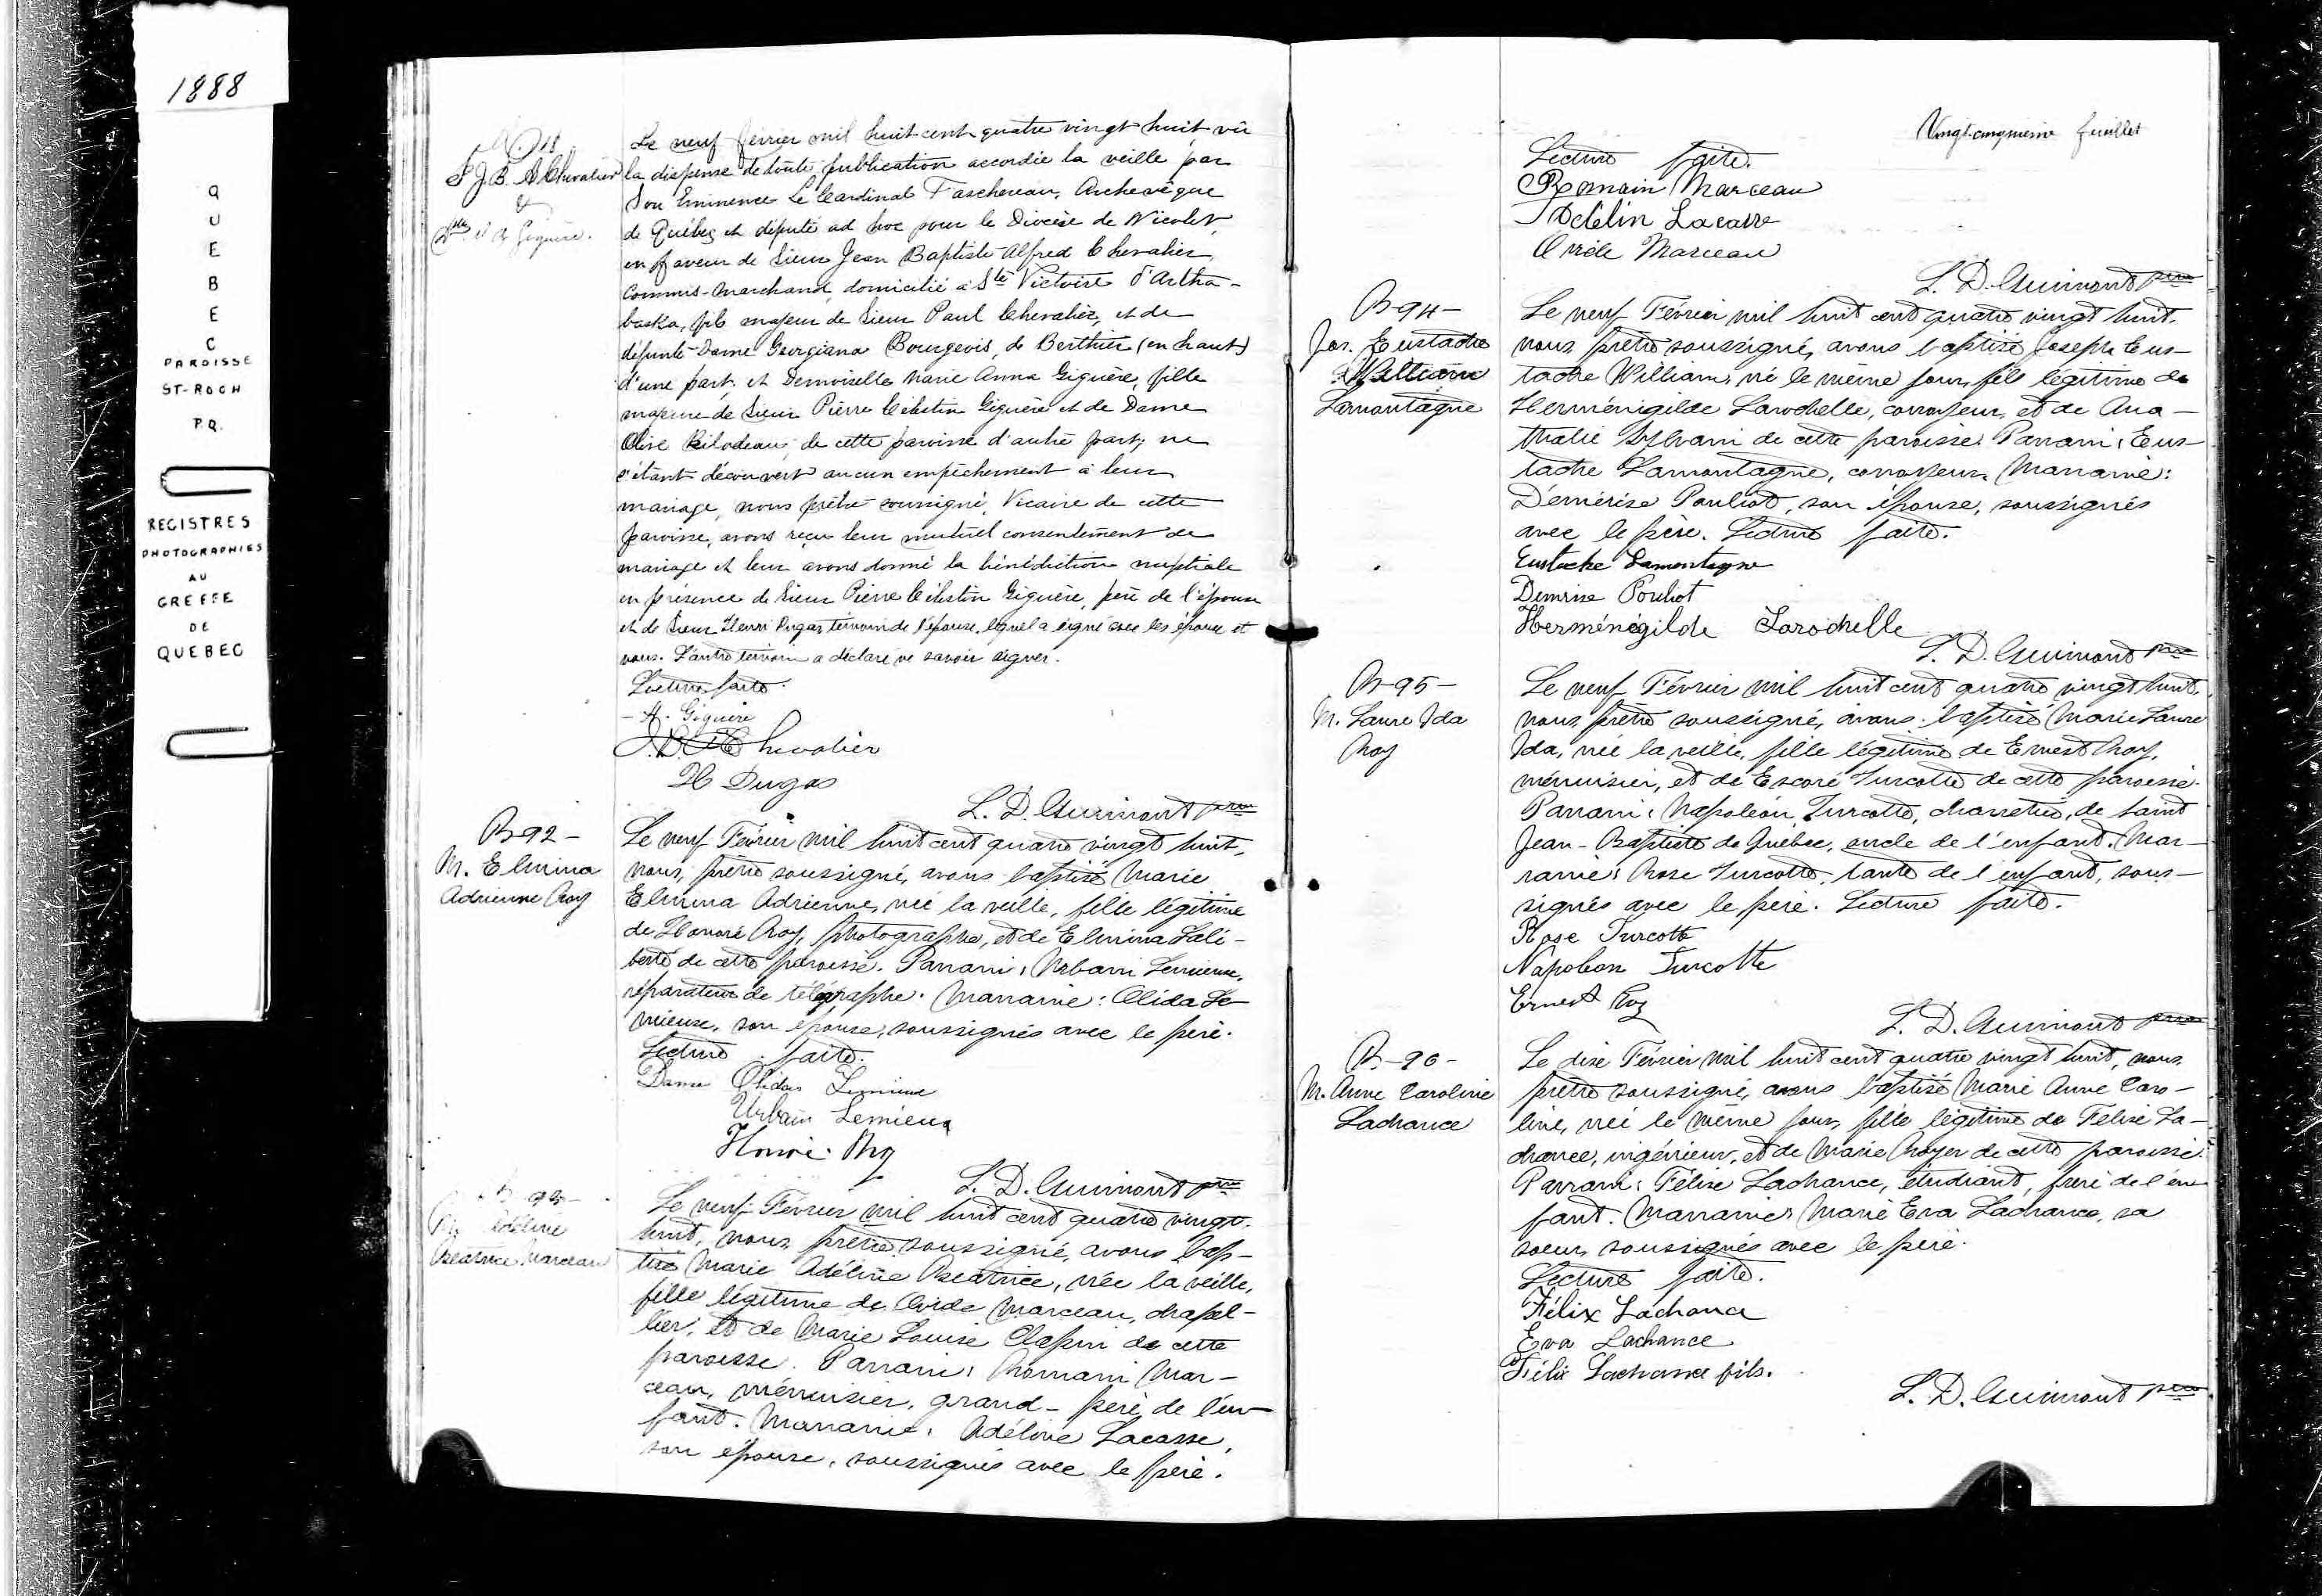 1888
QUEBEC
PAROISSE
ST-ROCH
P.Q.
REGISTRES
PHOTOGRAPHIES
AU
GREFFE
DE
QUEBEC
M. 18
J. B. A. Chevalier
&
Dlle M. A. Giguère.
Le neuf février mil huit cent quatre vingt huit vu
la dispense de toute publication accordée la veille par
Son Eminence Le Cardinal Taschereau, Archevêque
de Québec et député ad hoc pour le Diocèse de Nicolet,
en faveur de Sieur Jean Baptiste Alfred Chevalier,
Commis-marchand, domicilié à Ste Victoire d'Artha-
baska, fils majeur de Sieur Paul Chevalier, et de
défunte Dame Georgiana Bourgeois, de Berthier (en haut)
d'une part, et Demoiselle Marie Anna Giguère, fille
majeure de Sieur Pierre Célestin Giguère et de Dame
Olive Bilodeau, de cette paroisse d'autre part; ne
s'étant découvert aucun empêchement à leur
mariage, nous prêtre soussigné, Vicaire de cette
paroisse, avons reçu leur mutuel consentement de
mariage et leur avons donné la bénédiction nuptiale
en présence de Sieur Pierre Célestin Giguère, père de l'épouse
et de Sieur Henri Dugas témoin de l'époux, lequel a signé avec les époux et
nous. L'autre témoin a déclaré ne savoir signer.
Lecture faite.
- A. Giguère
J. B. A. Chevalier
H Dugas
L. D. Guimont ptre
B-92-
M. Elmina
Adrienne Roy
Le neuf Février mil huit cent quatre vingt huit,
nous, prêtre soussigné, avons baptisé Marie
Elmina Adrienne, née la veille, fille légitime
de Honoré Roy, photographe, et de Elmina Lali-
berté de cette paroisse. Parrain: Urbain Lemieux,
réparateur de télégraphe. Marraine: Olida Le-
mieux, son épouse, soussignés avec le père.
Lecture faite.
Dame Olida Lemieux
Urbain Lemieux
Honoré Roy
L. D. Guimont ptre
B-93-
M. Adéline
Béatrice Marceau
Le neuf Février mil huit cent quatre vingt-
huit, nous, prêtre soussigné, avons bap-
tisé Marie Adéline Béatrice, née la veille,
fille légitime de Ovide Marceau, chapel-
lier, et de Marie Louise Clapin de cette
paroisse. Parrain: Romain Mar-
ceau, menuisier, grand-père de l'en-
fant. Marraine: Adéline Lacasse,
son épouse, soussignés avec le père.
Vingt-cinquième feuillet
Lecture faite.
Romain Marceau
Adélin Lacasse
Ovide Marceau
L. D. Guimont ptre
B-94-
Jos. Eustache
William
Lamontagne
Le neuf Février mil huit cent quatre vingt huit,
nous, prêtre soussigné, avons baptisé Joseph Eus-
tache William, né le même jour, fils légitime de
Herménigilde Larochelle, corroyeur, et de Ana-
thalie Sylvain de cette paroisse. Parrain: Eus-
tache Lamontagne, corroyeur. Marraine:
Démérise Pouliot, son épouse, soussignés
avec le père. Lecture faite.
Eustache Lamontagne
Demerise Pouliot
Herménégilde Larochelle
L. D. Guimont ptre
B-95-
M. Laure Ida
Roy
Le neuf Février mil huit cent quatre vingt huit,
nous, prêtre soussigné, avons baptisé Marie Laure
Ida, née la veille, fille légitime de Ernest Roy,
menuisier, et de Escore Turcotte de cette paroisse.
Parrain: Napoléon Turcotte, charretier, de Saint
Jean-Baptiste de Québec, oncle de l'enfant. Mar-
raine: Rose Turcotte, tante de l'enfant, sous-
signés avec le père. Lecture faite.
Rose Turcotte
Napoleon Turcotte
Ernest Roy
L. D. Guimont ptre
B-96-
M. Anne Caroline
Lachance
Le dix Février mil huit cent quatre vingt huit, nous,
prêtre soussigné, avons baptisé Marie Anne Caro-
line, née le même jour, fille légitime de Félix La-
chance, ingénieur, et de Marie Royer de cette paroisse.
Parrain: Félix Lachance, étudiant, frère de l'en-
fant. Marraine: Marie Eva Lachance, sa
soeur, soussignés avec le père.
Lecture faite.
Félix Lachance
Eva Lachance
Félix Lachance fils.
L. D. Guimont ptre